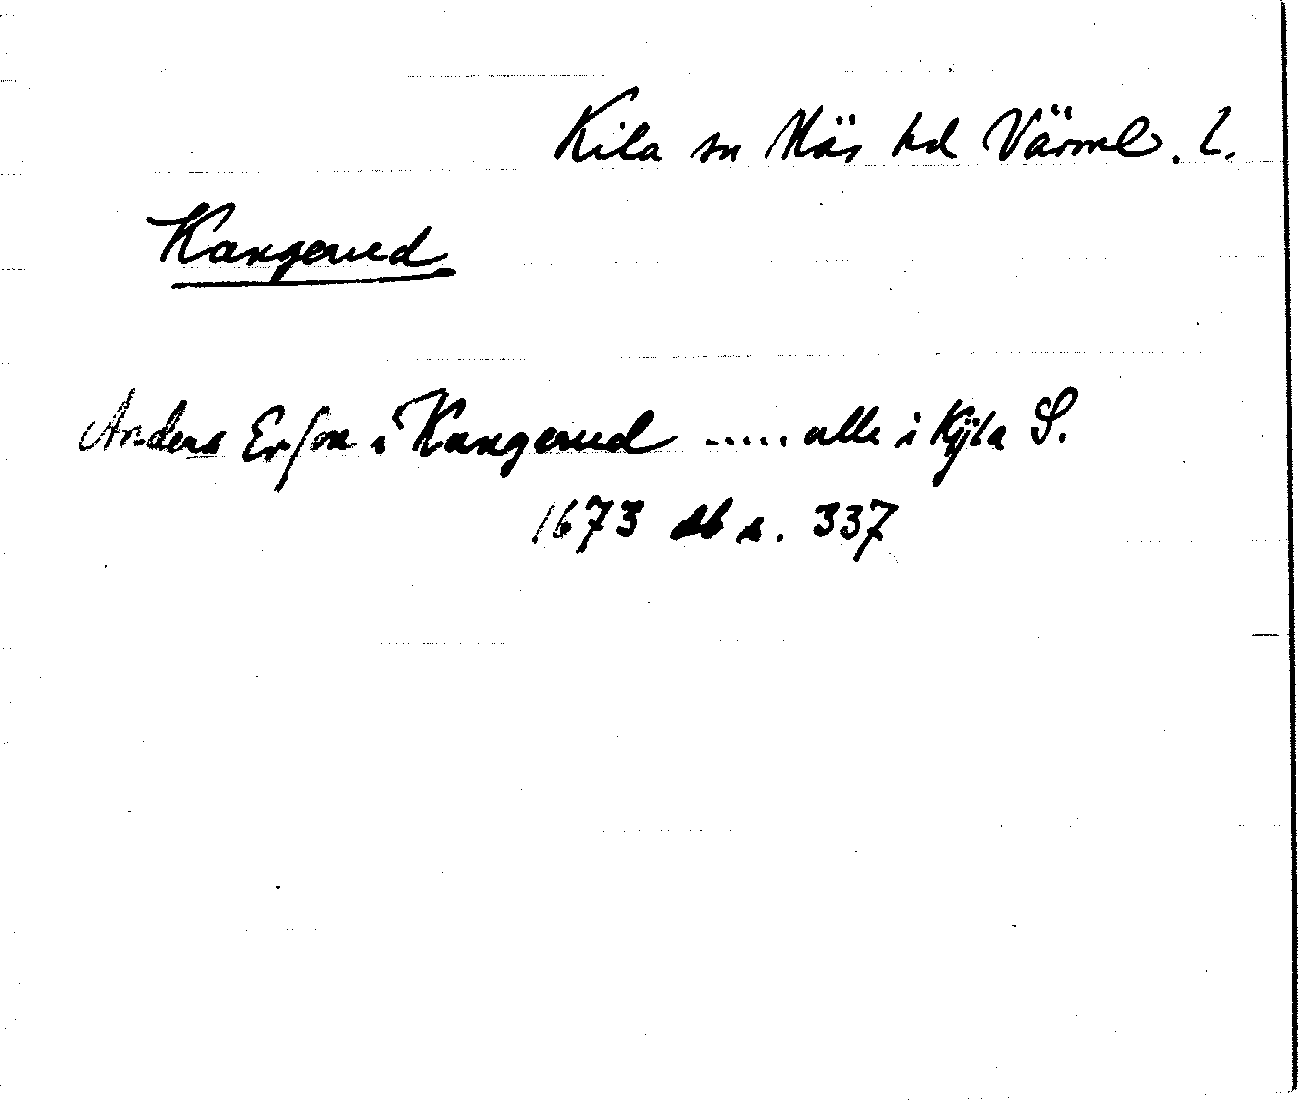 Kila sn Näs hd Värml. l.
Kangerud
Anders Erson i Kangerud ..... alle i Kÿla S.
1673 db s. 337